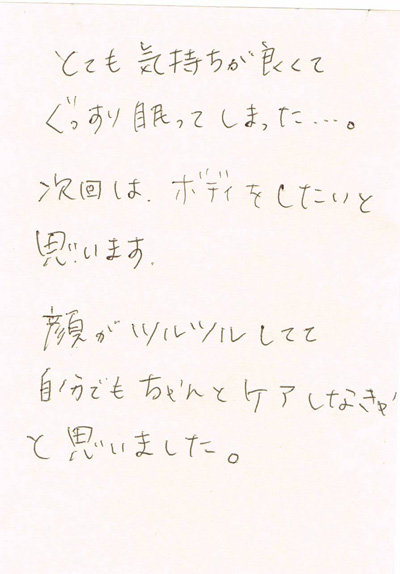 とても気持ちが良くて
ぐっすり眠ってしまった…。
次回は、ボディをしたいと
思います。
顔がツルツルしてて
自分でもちゃんとケアしなきゃ
と思いました。